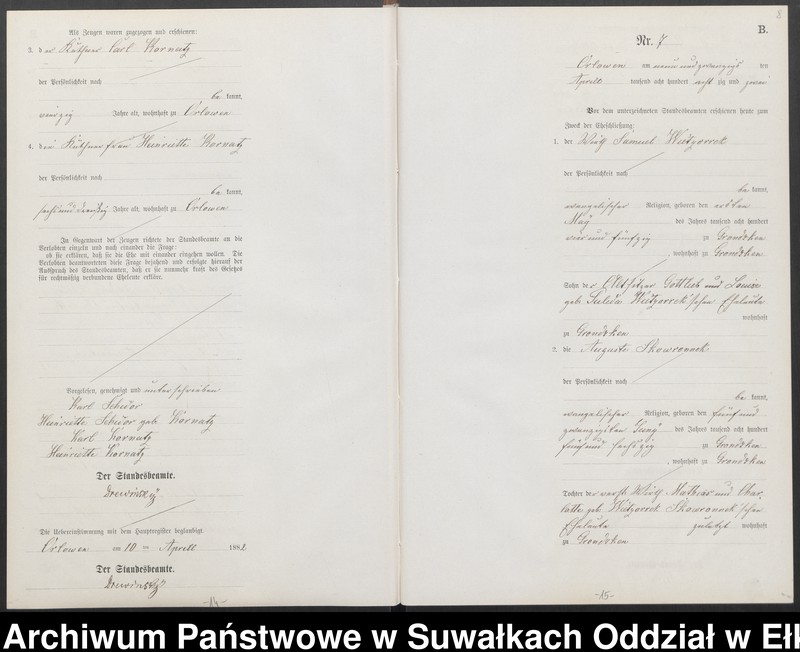 Als Zeugen waren zugezogen und erschienen:
3. der Käthner Carl Kornatz
der Persönlichkeit nach
be kannt,
vierzig Jahre alt, wohnhaft zu Orlowen
4. die Käthnerfrau Heinriette Kornatz
der Persönlichkeit nach
be kannt,
sechs und dreißig Jahre alt, wohnhaft zu Orlowen
In Gegenwart der Zeugen richtete der Standesbeamte an die
Verlobten einzeln und nach einander die Frage:
ob sie erklären, daß sie die Ehe mit einander eingehen wollen. Die
Verlobten beantworteten diese Frage bejahend und erfolgte hierauf der
Ausspruch des Standesbeamten, daß er sie nunmehr kraft des Gesetzes
für rechtmäßig verbundene Eheleute erkläre.
Vorgelesen, genehmigt und unterschrieben
Karl
Heinriette geb Kornatz
Karl Kornatz
Heinriette Kornatz
Der Standesbeamte.
Drewinsky
Die Uebereinstimmung mit dem Hauptregister beglaubigt.
Orlowen am 10 ten Aprill 1882
Der Standesbeamte.
Drewinsky
-14-
2
B.
Nr. 7
Orlowen am neun und zwanzigs ten
Aprill tausend acht hundert acht zig und zwei
Vor dem unterzeichneten Standesbeamten erschienen heute zum
Zweck der Eheschließung:
1. der Wirth Samuel Wutzorrek
der Persönlichkeit nach
be kannt,
evangelischer Religion, geboren den ersten
May des Jahres tausend acht hundert
vier und fünfzig zu Grondzken
, wohnhaft zu Grondzken
Sohn der Altsitzer Gottlieb und Louise
geb Wutzorrek'schen Eheleute
wohnhaft
zu Grondzken
2. die Auguste Skowronnek
der Persönlichkeit nach
be kannt,
evangelischer Religion, geboren den fünf und
zwanzigsten Juny des Jahres tausend acht hundert
fünf und sechszig zu Grondzken
, wohnhaft zu Grondzken
Tochter der verst. Wirth Mathias und Char-
lotte geb. Wutzorrek Skowronnek'schen
Eheleute zuletzt wohnhaft
zu Grondzken
-15-
Archiwum Państwowe w Suwałkach Oddział w Ełk